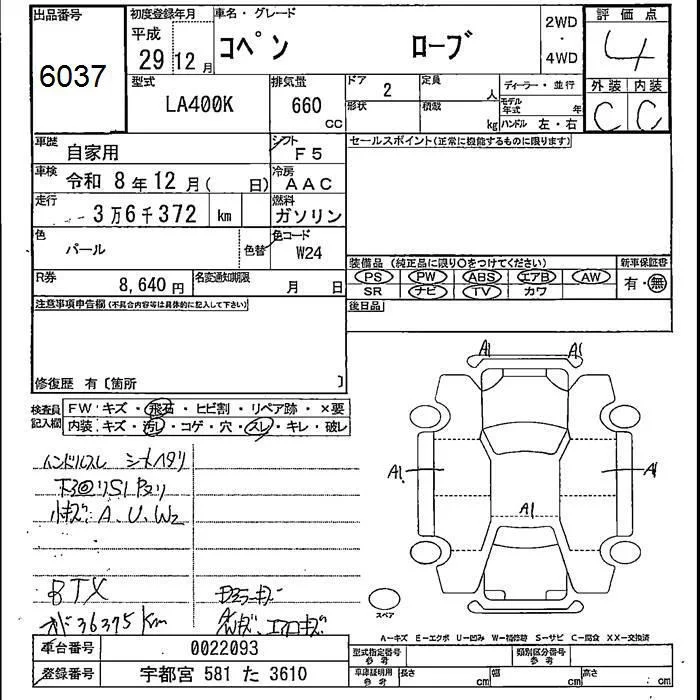 出品番号
6037
初度登録年月
平成
29 12 月
車名・グレード
コペン ローブ
2WD
・
4WD
評価点
4
型式
LA400K
排気量
660
CC
ドア
2
定員
人
形状
積載
kg
ディーラー・並行
モデル年式
年
ハンドル 左・右
外装 内装
C C
車歴
自家用
シフト
F5
セールスポイント(正常に機能するものに限ります)
車検
令和 8 年 12 月( 日)
冷房
AAC
走行
3万6千372 km
燃料
ガソリン
色
パール
色替
色コード
W24
R券
8,640 円
名変通知期限
月 日
装備品 (純正品に限り○をつけてください)
新車保証書
PS PW ABS エアB AW
SR ナビ TV カワ
有・無
後日品
注意事項申告欄(不具合内容等は具体的に記入して下さい)
修復歴 有〔箇所 〕
検査員
記入欄
FW キズ・飛石・ヒビ割・リペア跡・×要
内装 キズ・汚レ・コゲ・穴・スレ・キレ・破レ
ハンドルスレ シートヘタリ
小キズ A、U、W2
BTX
36375 Km
A1 A1
A1 A1
A1
スペア
A-キズ E-エクボ U-凹み W-補修跡 S-サビ C-腐食 XX-交換済
車台番号
0022093
登録番号
宇都宮 581 た 3610
型式指定番号
参考
類別区分番号
参考
車庫証明用
参考
長さ
cm
幅
cm
高さ
cm